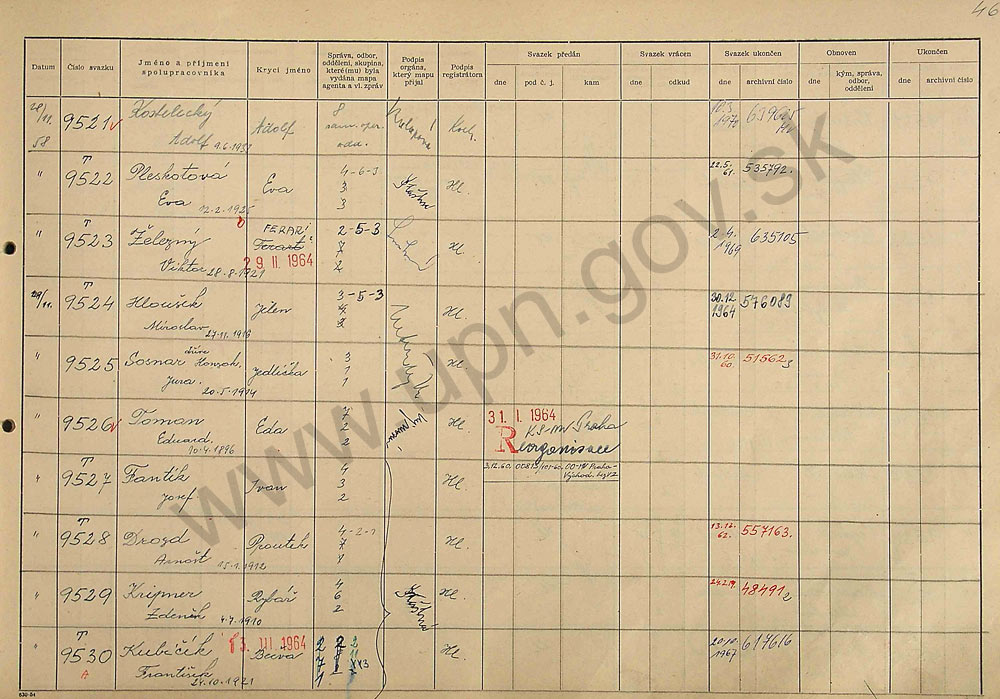 46
Datum Číslo svazku Jméno a příjmení spolupracovníka Krycí jméno Správa, odbor, oddělení, skupina, které(mu) byla vydána mapa agenta a vl. zpráv Podpis orgána, který mapu přijal Podpis registrátora Svazek předán Svazek vrácen Svazek ukončen Obnoven Ukončen
dne pod č. j. kam dne odkud dne archivní číslo dne kým, správa, odbor, oddělení dne archivní číslo
28/11. 9521 v Kostelecký Adolf 8 10.3. 639665
58 Adolf 9.6.1931 sam. oper. odd. Koch. 1970 MV
T
" 9522 Pleskotová Eva 4-6-3 Hl. 22.5. 535792.
Eva 12-2-1925 3 61.
3
T
" 9523 Železný FERARI 2-5-3 Hl. 2.4. 635105
Ferast 7 1969
Viktor 28-8-1921 29 II. 1964 2
T
29/11. 9524 Hloušek Jilen 3-5-3 Hl. 30.12. 546089
Miroslav 27-11-1916 4 1964
2
T
" 9525 Sosnar dříve Honzok. Jedlička 3 Hl. 31.10. 51562
Jura. 20-5-1914 1 60.
1
" 9526 v Toman Eda 7 Hl. 31. I. 1964 KS-MV Praha
Eduard. 10-4-1896 2 Reorganisace
2
T
" 9527 Fantík Ivan 4 Hl. 3.12.60.
Josef. 3
2
T
" 9528 Drozd Proutek 4-2-1 Hl. 13.12. 557163.
Arnošt 15-1-1912 7 62.
" 9529 Kripner Rybář 4 Hl. 48491
Zdeněk 4-7-1910 6
2
T
" 9530 Kubíček 13. III. 1964 2 2 Hl. 20.10. 617616
A František 24-10-1921 7 1967
1
www.upn.gov.sk